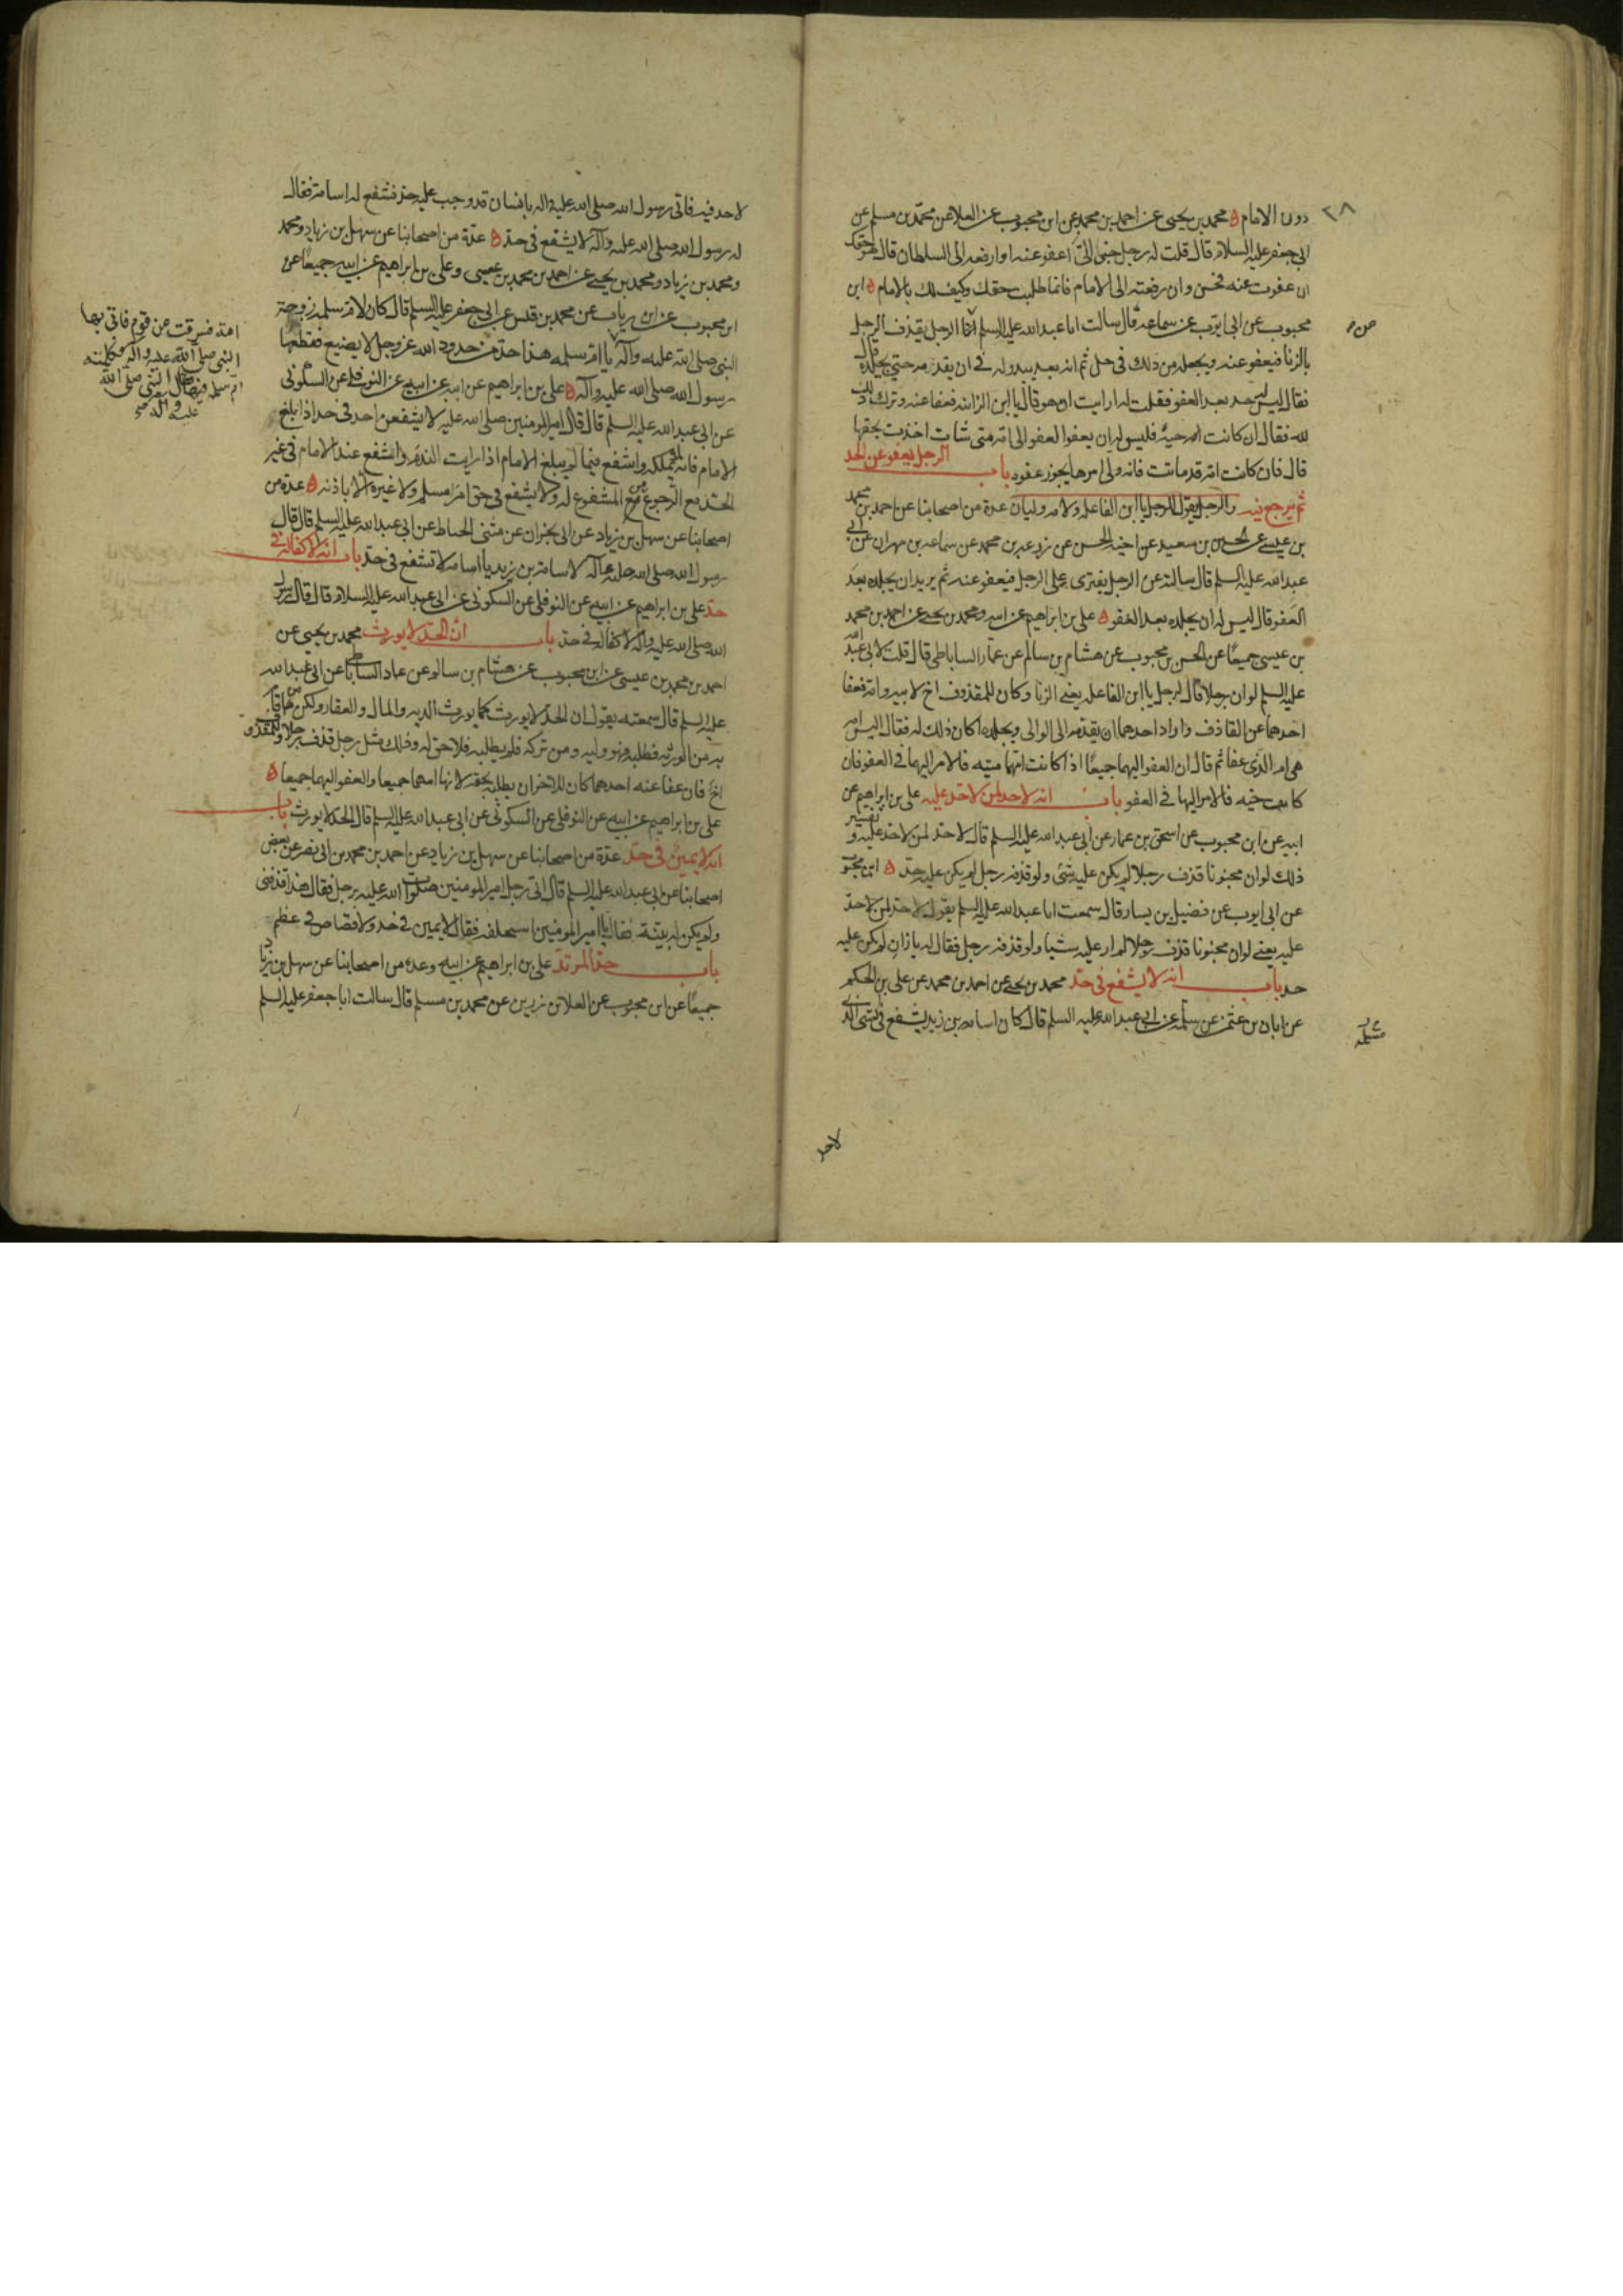 ٢٨
دون الامام ه محمد بن يحيى عن احمد بن محمد عن ابن محبوب عن العلا عن محمد بن مسلم عن
ابى جعفر عليه السلام قال قلت له رجل جنى الىّ اعفو عنه او ارفعه الى السلطان قال هو حقك
ان عفوت عنه فحسن وان رفعته الى الامام فانما طلبت حقك وكيف لك بالامام ه ابن
محبوب عن ابى ايوب عن سماعه قال سالت ابا عبد الله عليه السلم الرجل يقذف الرجل
بالزنا فيعفو عنه ويجعله من ذلك فى حل ثم انه بعد يبدو له فى ان يقدمه حتى يجلده قال
فقال ليس له حد بعد العفو فقلت له ارايت ان هو قال يا ابن الزانيه فعفا عنه وترك ذلك
لله فقال ان كانت امه حيه فليس له ان يعفوا العفو الى امه متى شات اخذت بحقها
قال فان كانت امه قد ماتت فانه ولى امرها يجوز عفوه باب الرجل يعفو عن الحد
ثم يرجع فيه والرجل يقول للرجل يا ابن الفاعله ولامه وليان عدة من اصحابنا عن احمد بن محمد
بن عيسى عن الحسين بن سعيد عن اخيه الحسن عن زرعه بن محمد عن سماعه بن مهران عن ابى
عبد الله عليه السلم قال سالته عن الرجل يفترى على الرجل فيعفو عنه ثم يريد ان يجلده بعد
العفو قال ليس له ان يجلده بعد العفو ه على بن ابراهيم عن ابيه ومحمد بن يحيى عن احمد بن محمد
بن عيسى جميعًا عن الحسن بن محبوب عن هشام بن سالم عن عمار الساباطى قال قلت لابى عبد الله
عليه السلم لو ان رجلا قال لرجل يا ابن الفاعله يعنى الزنا وكان للمقذوف اخ لابيه وامه فعفا
احدهما عن القاذف واراد احدهما ان يقدمه الى الوالى ويجلده اكان ذلك له فقال اليس امه
هى ام الذى عفا ثم قال ان العفو اليهما جميعًا اذا كانت امهما ميته فالامر اليهما فى العفو فان
كانت حيه فالامر اليها فى العفو باب انه لا حد لمن لا حد عليه على بن ابراهيم عن
ابيه عن ابن محبوب عن اسحق بن عمار عن ابى عبد الله عليه السلم قال لا حد لمن لا حد عليه وتفسير
ذلك لو ان مجنونا قذف رجلا لم يكن عليه شئ ولو قذفه رجل لم يكن عليه حد ه ابن محبوب
عن ابى ايوب عن فضيل بن يسار قال سمعت ابا عبد الله عليه السلم يقول لا حد لمن لا حد
عليه يعنى لو ان مجنونا قذف رجلا لم ار عليه شيا ولو قذفه رجل فقال له يا زان لم يكن عليه
حد باب انه لا يشفع فى حد محمد بن يحيى عن احمد بن محمد عن على بن الحكم
عن ابان بن عثمن عن سلمه عن ابى عبد الله عليه السلم قال كان اسامه بن زيد يشفع فى الشى الذى
لاحد
لا حد فيه فاتى رسول الله صلى الله عليه واله بانسان قد وجب عليه حد فشفع له اسامة فقال
له رسول الله صلى الله عليه وآله لا يشفع فى حد ه عدة من اصحابنا عن سهل بن زياد ومحمد
ومحمد بن زياد ومحمد بن يحيى عن احمد بن محمد بن عيسى وعلى بن ابراهيم عن ابيه جميعًا عن
ابن محبوب عن ابن رياب عن محمد بن قيس عن ابى جعفر عليه السلم قال كان لام سلمه زوجة
النبى صلى الله عليه وآله يا ام سلمه هذا حد من حدود الله عز وجل لا يضيع فقطعها
رسول الله صلى الله عليه وآله ه على بن ابراهيم عن ابيه عن النوفلى عن السكونى
عن ابى عبد الله عليه السلم قال قال امير المومنين صلى الله عليه لا يشفعن احد فى حد اذا بلغ
الامام فانه يملكه واشفع فيما لم يبلغ الامام اذا رايت الندم واشفع عند الامام فى غير
الحد مع الرجوع من المشفوع له ولا يشفع فى حق امرء مسلم ولا غيره الا باذنه ه عدة من
اصحابنا عن سهل بن زياد عن ابى نجران عن مثنى الحناط عن ابى عبد الله عليه السلم قال قال
رسول الله صلى الله عليه وآله لاسامة بن زيد يا اسامه لا تشفع فى حد باب انه لا كفالة فى
حد على بن ابراهيم عن ابيه عن النوفلى عن السكونى عن ابى عبد الله عليه السلام قال قال رسول
الله صلى الله عليه وآله لا كفالة فى حد باب ان الحد لا يورث محمد بن يحيى عن
احمد بن محمد بن عيسى عن ابن محبوب عن هشام بن سالم عن عمار الساباطى عن ابى عبد الله
عليه السلم قال سمعته يقول ان الحد لا يورث كما يورث الديه والمال والعقار ولكن من قام
به من الورثه فطلبه فهو وليه ومن تركه فلم يطلبه فلا حق له وذلك مثل رجل قذف رجلا وللمقذوف
اخ فان عفا عنه احدهما كان للاخر ان يطلبه بحقه لانها امهما جميعا والعفو اليهما جميعا ه
على بن ابراهيم عن ابيه عن النوفلى عن السكونى عن ابى عبد الله عليه السلم قال الحد لا يورث باب
انه لا يمين فى حد عدة من اصحابنا عن سهل بن زياد عن احمد بن محمد بن ابى نصر عن بعض
اصحابنا عن ابى عبد الله عليه السلم قال اتى رجل امير المومنين صلوات الله عليه برجل فقال هذا قذفنى
ولم يكن له بينة فقال يا امير المومنين استحلفه فقال لا يمين فى حد ولا قصاص فى عظم
باب حد المرتد على بن ابراهيم عن ابيه وعدة من اصحابنا عن سهل بن زياد
جميعًا عن ابن محبوب عن العلا بن رزين عن محمد بن مسلم قال سالت ابا جعفر عليه السلم
امة فسرقت من قوم فاتى بها
النبى صلى الله عليه وآله فكلمته
ام سلمه فيها فقال النبى صلى الله
عليه وآله صح